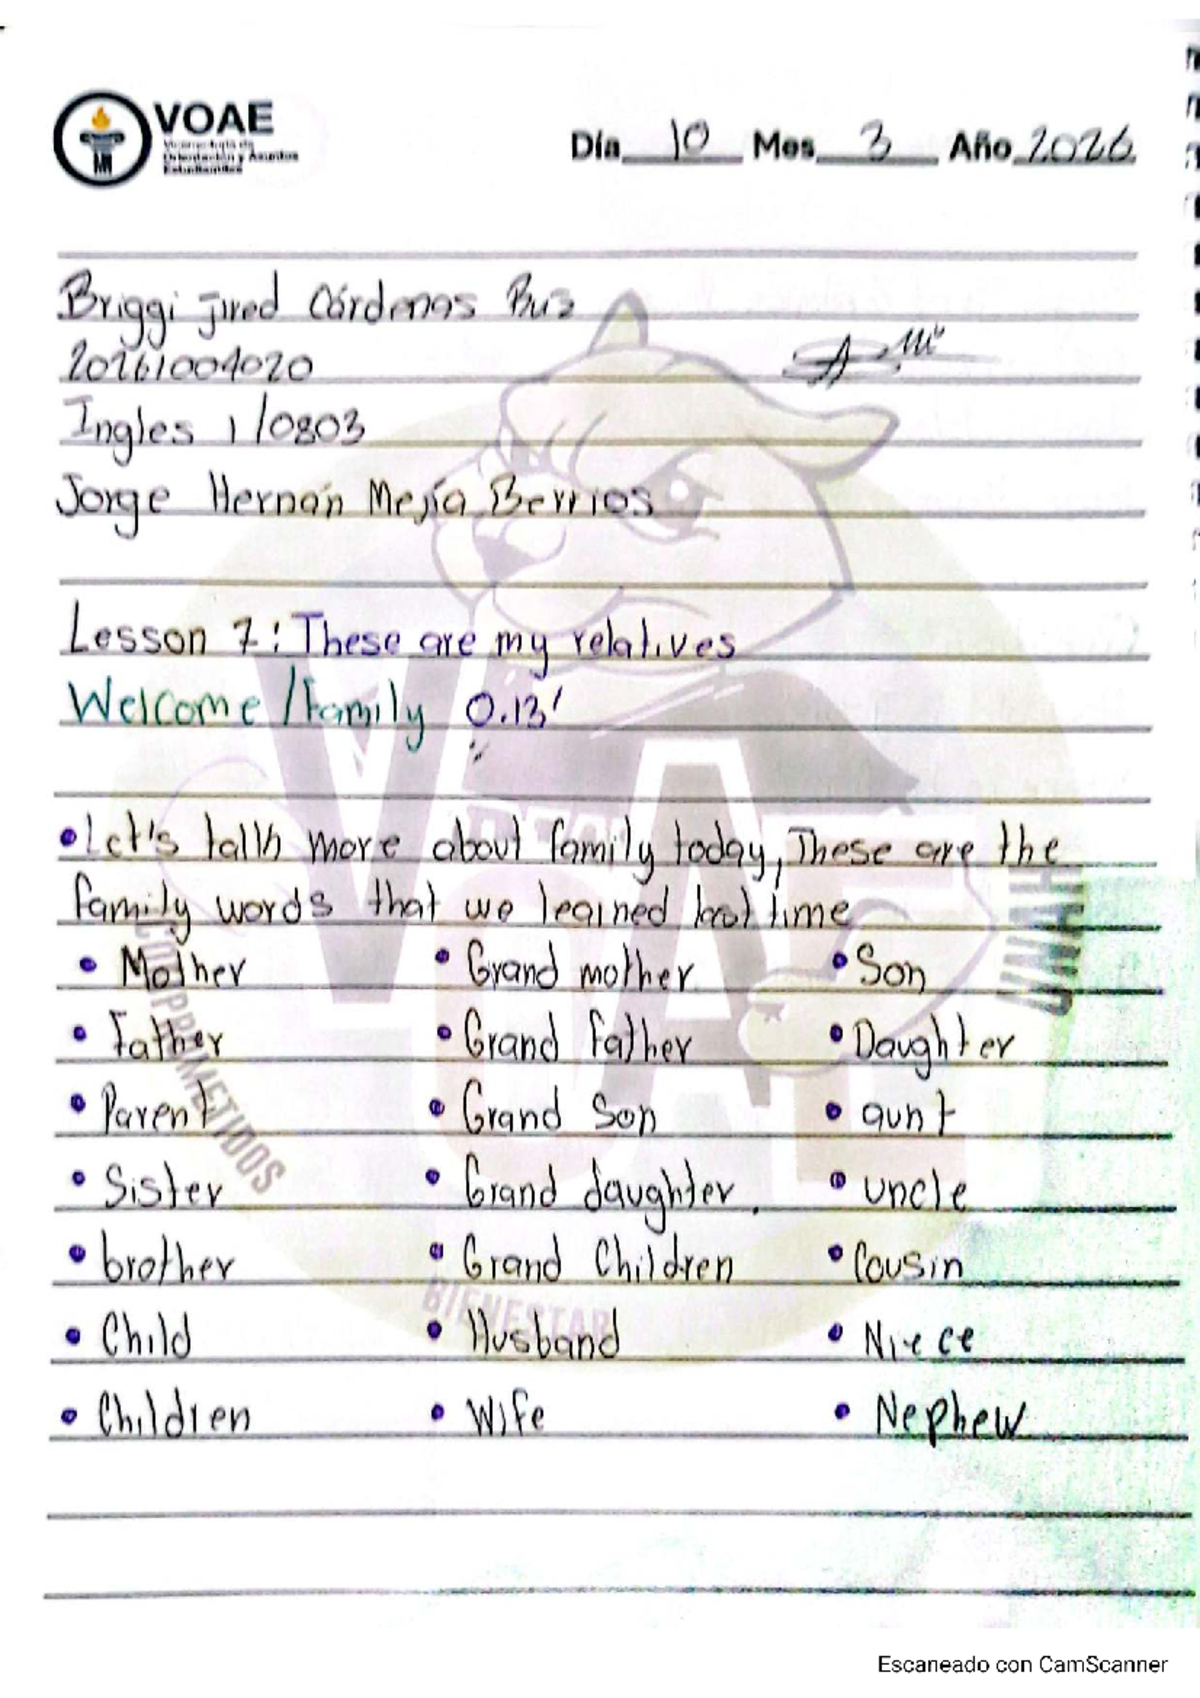 VOAE
Vicerrectoría de
Orientación y Asuntos
Estudiantiles
Día 10 Mes 3 Año 2026
Briggi Jired Cárdenas Ruz
20261004020
Ingles 1 /0803
Jorge Hernán Mejía Berrios
Lesson 7: These are my relatives
Welcome /family 0.13'
• Let's talk more about family today, These are the
family words that we learned last time
• Mother • Grand mother • Son
• Father • Grand father • Daughter
• Parent • Grand Son • aunt
• Sister • Grand daughter. • uncle
• brother • Grand Children • Cousin
• Child • Husband • Niece
• Children • Wife • Nephew
VOAE
UNAH
COMPROMETIDOS
BIENESTAR
Escaneado con CamScanner